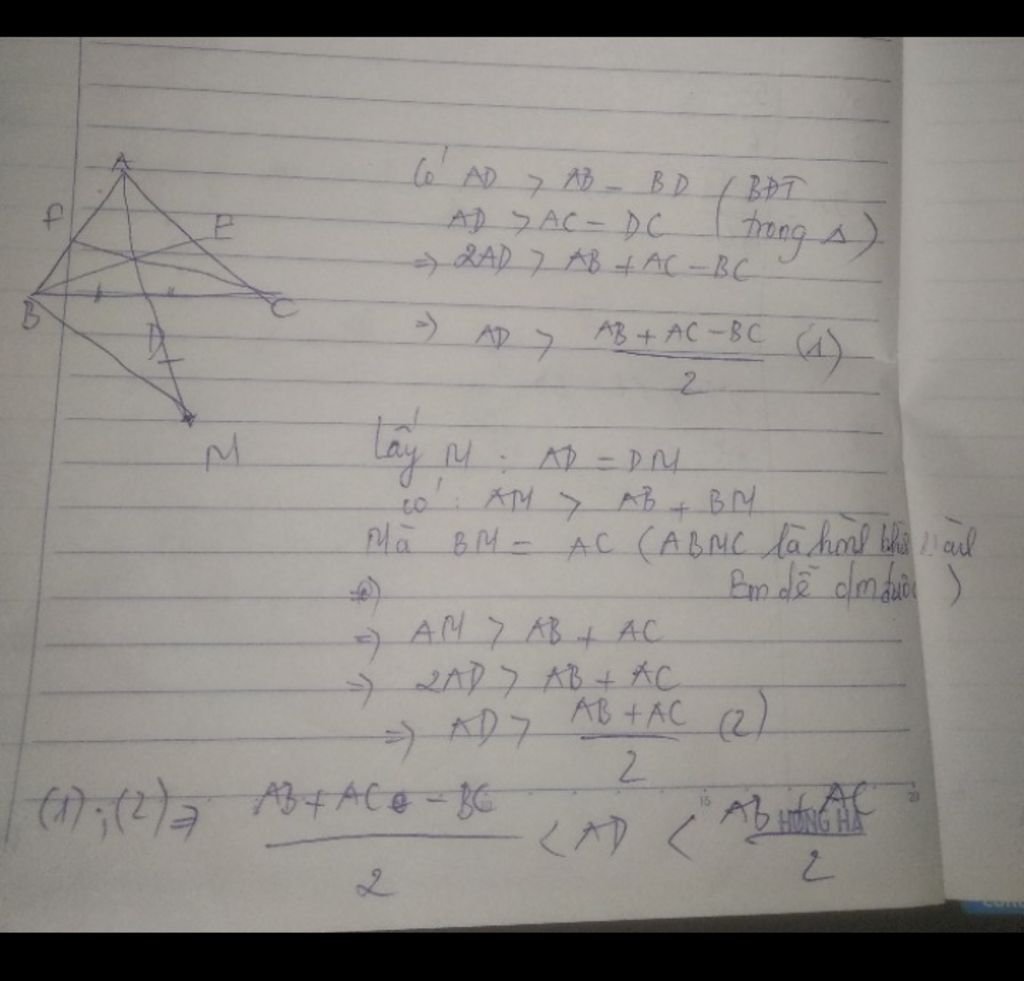 A
F
E
B
C
D
M
Có AD > AB - BD (BĐT
AD > AC - DC trong Δ)
=> 2AD > AB + AC - BC
=> AD > (AB + AC - BC)/2 (1)
Lấy M : AD = DM
có : AM > AB + BM
Mà BM = AC (ABMC là hình bình
Em dễ đm được)
=>
=> AM > AB + AC
=> 2AD > AB + AC
=> AD > (AB + AC)/2 (2)
(1);(2) => (AB + AC - BC)/2 < AD < (AB + AC)/2
15
20
HONG HA